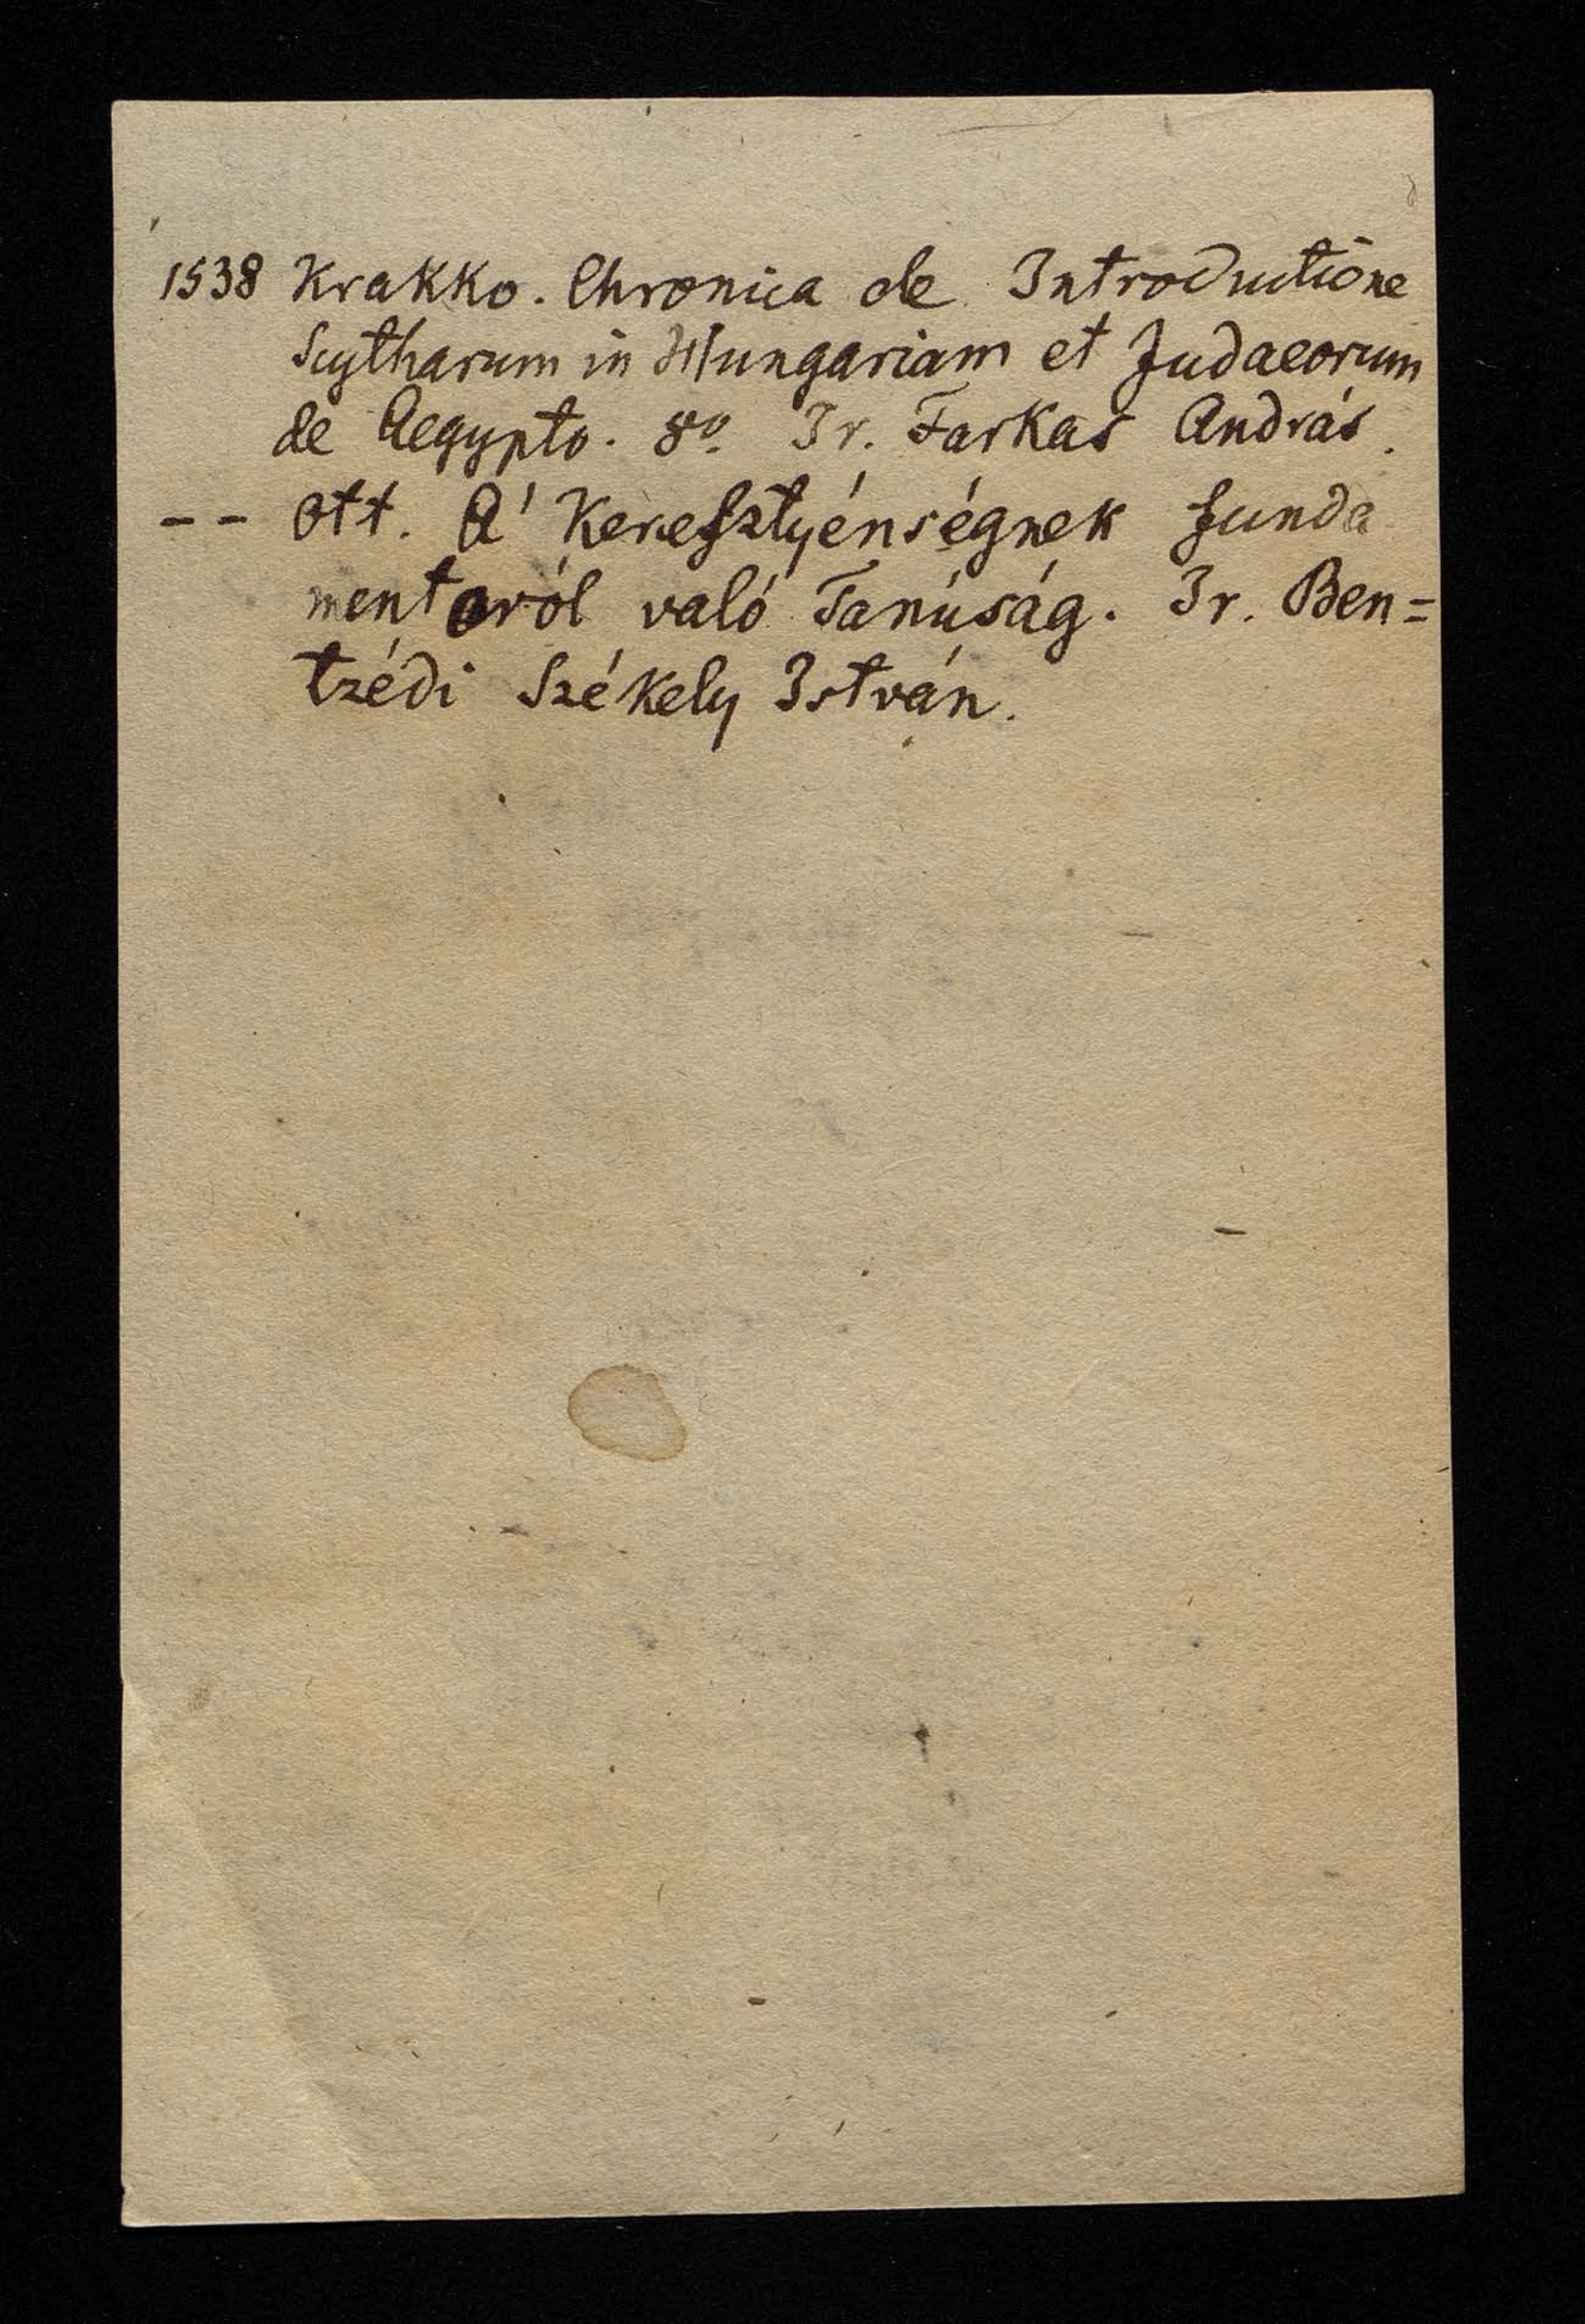 1538 Krakko. Chronica de Introductione
Scytharum in Hungariam et Judaeorum
de Aegypto. 8º. Ir. Farkas András.
-- Ott. A' Keresztyénségnek funda
mentoról való Tanúság. Ir. Ben=
tzédi Székely István.